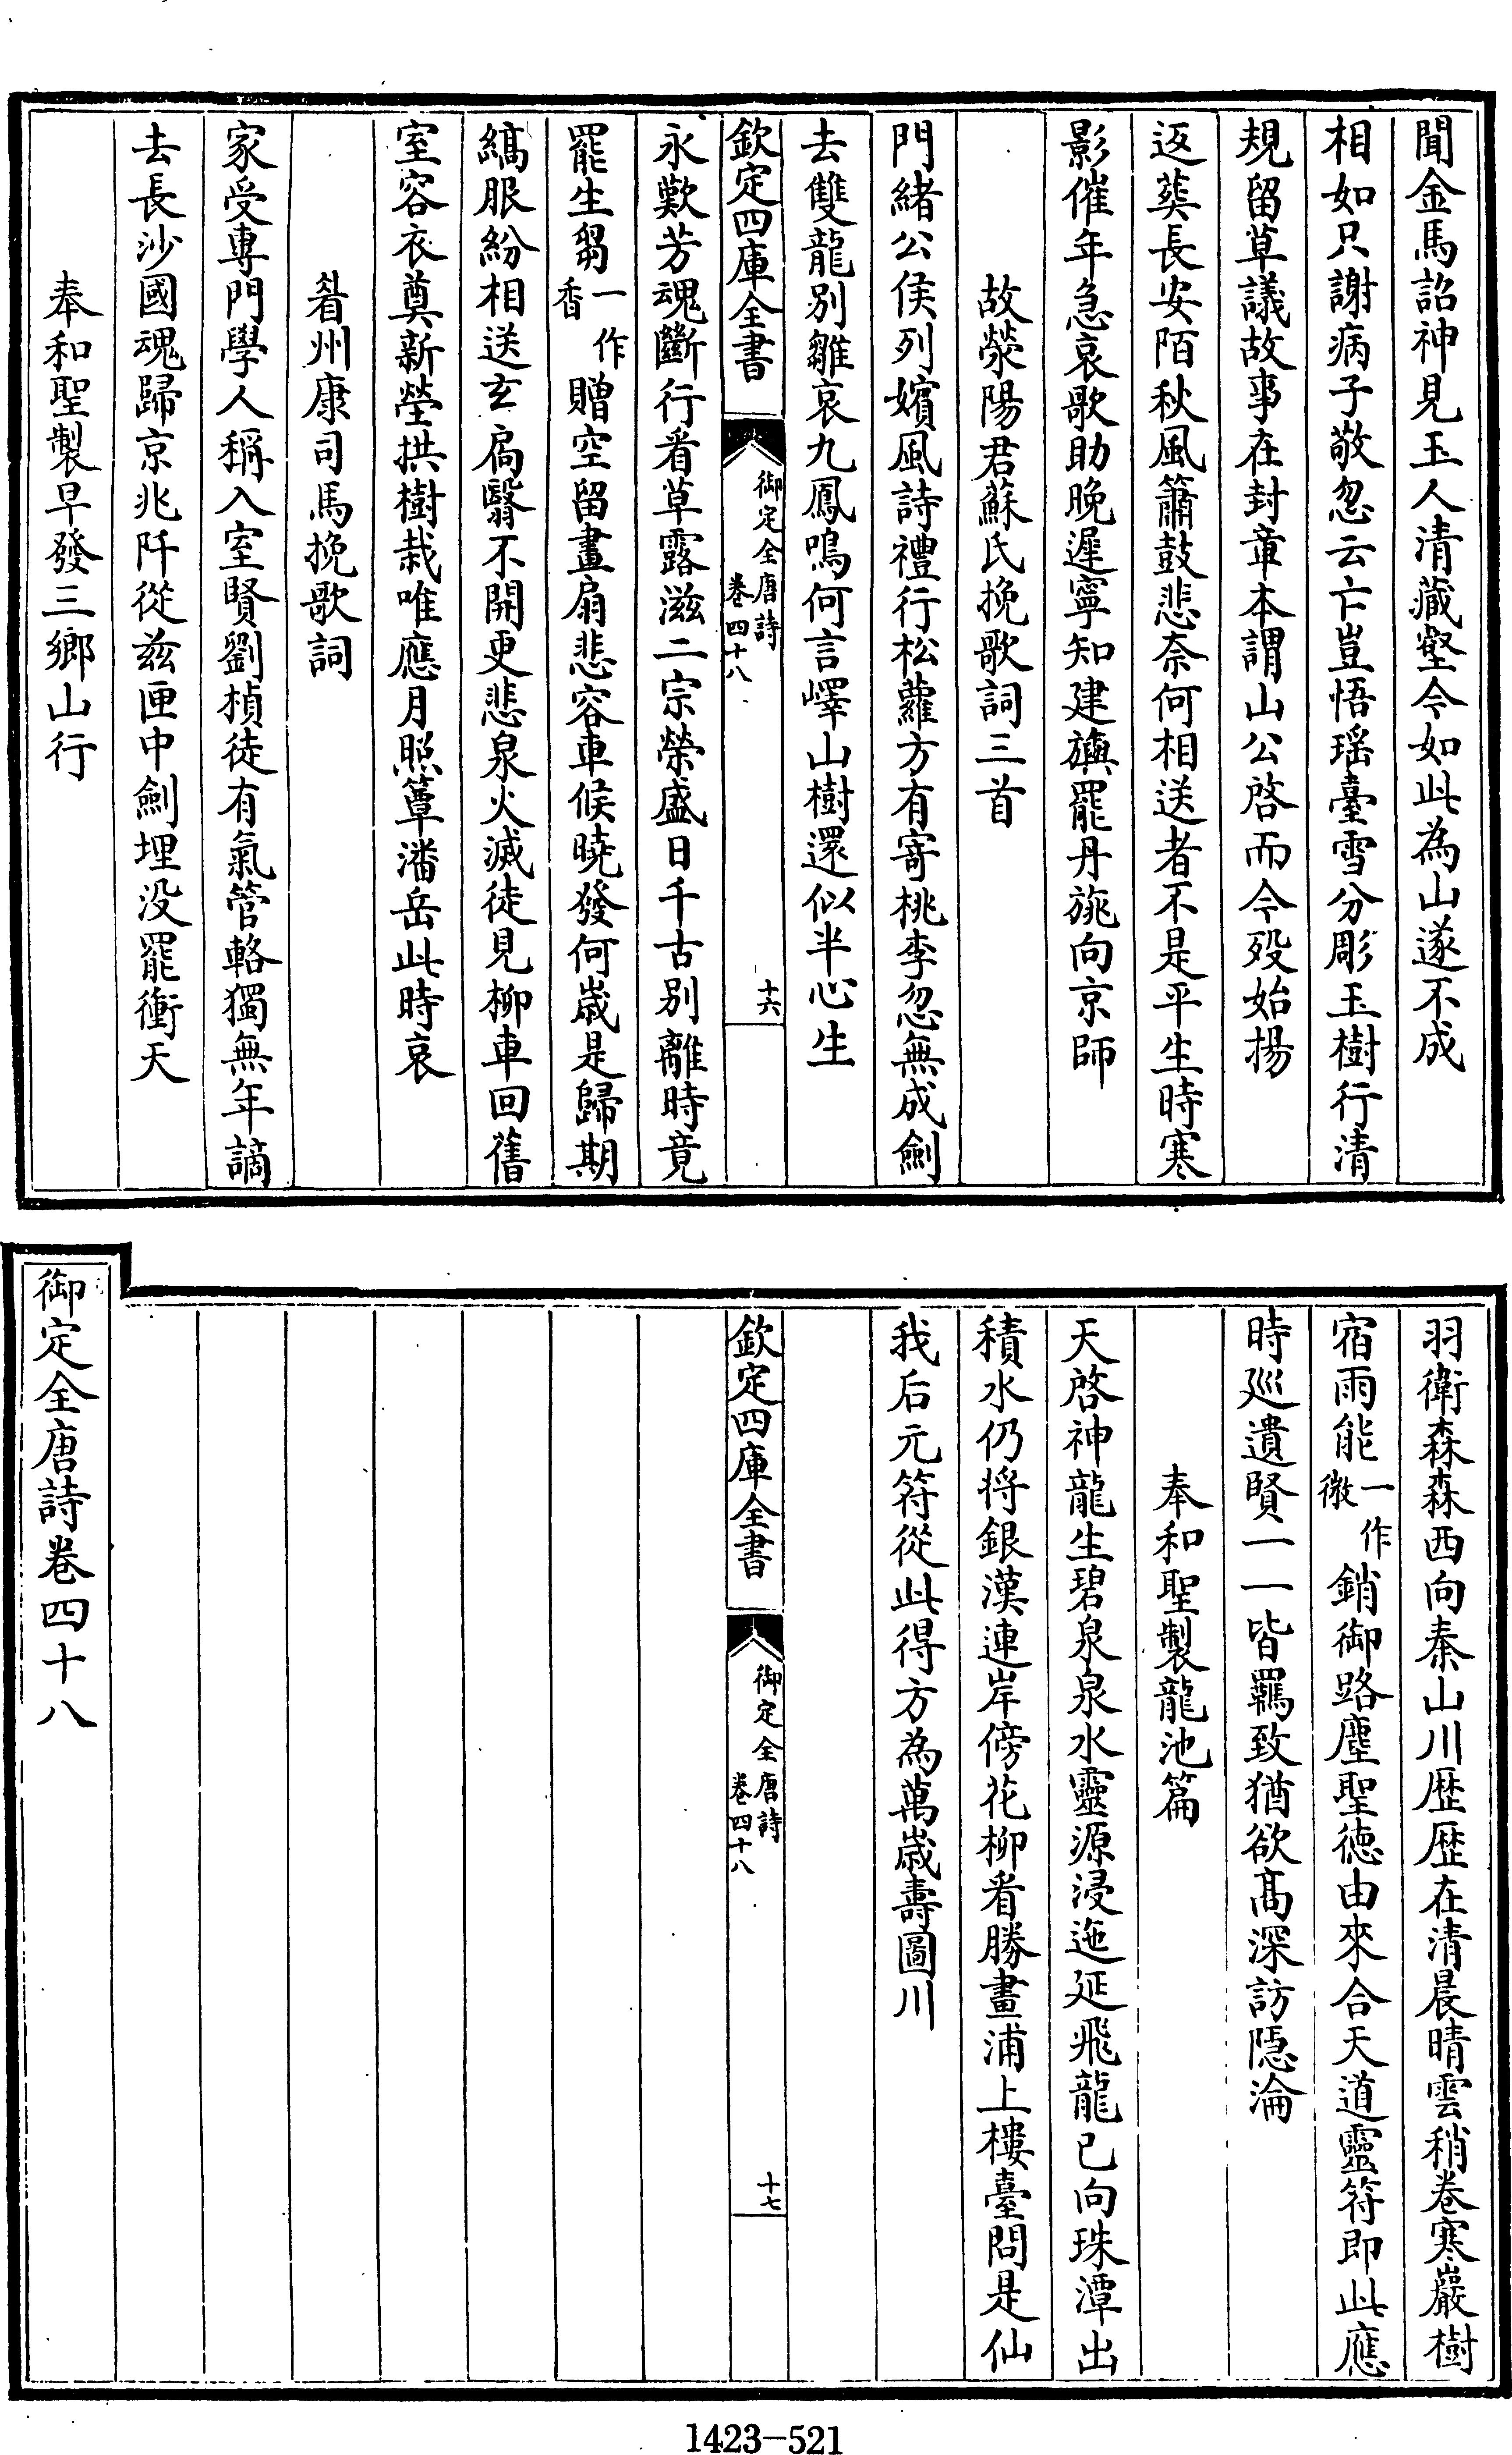 聞金馬詔神見玉人清藏壑今如此為山遂不成
相如只謝病子敬忽云亡豈悟瑶臺雪分彫玉樹行清
規留草議故事在封章本謂山公啓而今殁始揚
返葬長安陌秋風簫鼓悲奈何相送者不是平生時寒
影催年急哀歌助晚遲寧知建旟罷丹旐向京師
故滎陽君蘇氏挽歌詞三首
門緒公侯列嬪風詩禮行松蘿方有寄桃李忽無成劍
去雙龍别雛哀九鳳鳴何言嶧山樹還似半心生
欽定四庫全書
御定全唐詩
卷四十八
十六
永歎芳魂斷行看草露滋二宗榮盛日千古别離時竟
罷生芻一作香贈空留畫扇悲容車候曉發何歲是歸期
縞服紛相送玄扃翳不開更悲泉火滅徒見柳車回舊
室容衣奠新塋拱樹栽唯應月照簟潘岳此時哀
眷州康司馬挽歌詞
家受專門學人稱入室賢劉楨徒有氣管輅獨無年謫
去長沙國魂歸京兆阡從兹匣中劍埋没罷衝天
奉和聖製早發三鄉山行
羽衛森森西向秦山川歴歴在清晨晴雲稍卷寒巖樹
宿雨能一作微銷御路塵聖徳由來合天道靈符即此應
時巡遺賢一一皆羈致猶欲髙深訪隱淪
奉和聖製龍池篇
天啓神龍生碧泉泉水靈源浸迤延飛龍已向珠潭出
積水仍将銀漢連岸傍花柳看勝畫浦上樓臺問是仙
我后元符從此得方為萬歲壽圖川
欽定四庫全書
御定全唐詩
卷四十八
十七
御定全唐詩卷四十八
1423-521